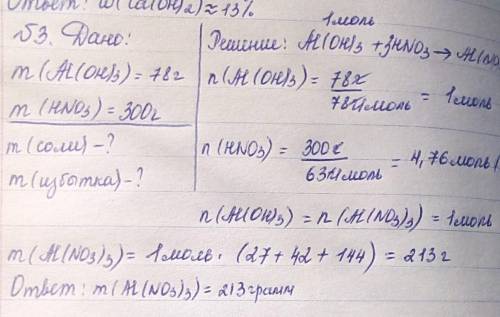 Ответ: ω(Ca(OH)2)≈13%
√3. Дано:
m(Al(OH)3)=78г
m(HNO3)=300г
m(соли)-?
m(избытка)-?
1моль
Решение: Al(OH)3+3HNO3→Al(NO
n(Al(OH)3)= 78г/78г/моль = 1моль
n(HNO3)= 300г/63г/моль = 4,76моль(
n(Al(OH)3)=n(Al(NO3)3)=1моль
m(Al(NO3)3)=1моль·(27+42+144)=213г
Ответ: m(Al(NO3)3)=213грамм